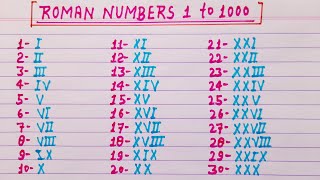 [ROMAN NUMBERS 1 to 1000]
1- I 11- XI 21- XXI
2- II 12- XII 22- XXII
3- III 13- XIII 23- XXIII
4- IV 14- XIV 24- XXIV
5- V 15- XV 25- XXV
6- VI 16- XVI 26- XXVI
7- VII 17- XVII 27- XXVII
8- VIII 18- XVIII 28- XXVIII
9- IX 19- XIX 29- XXIX
10- X 20- XX 30- XXX